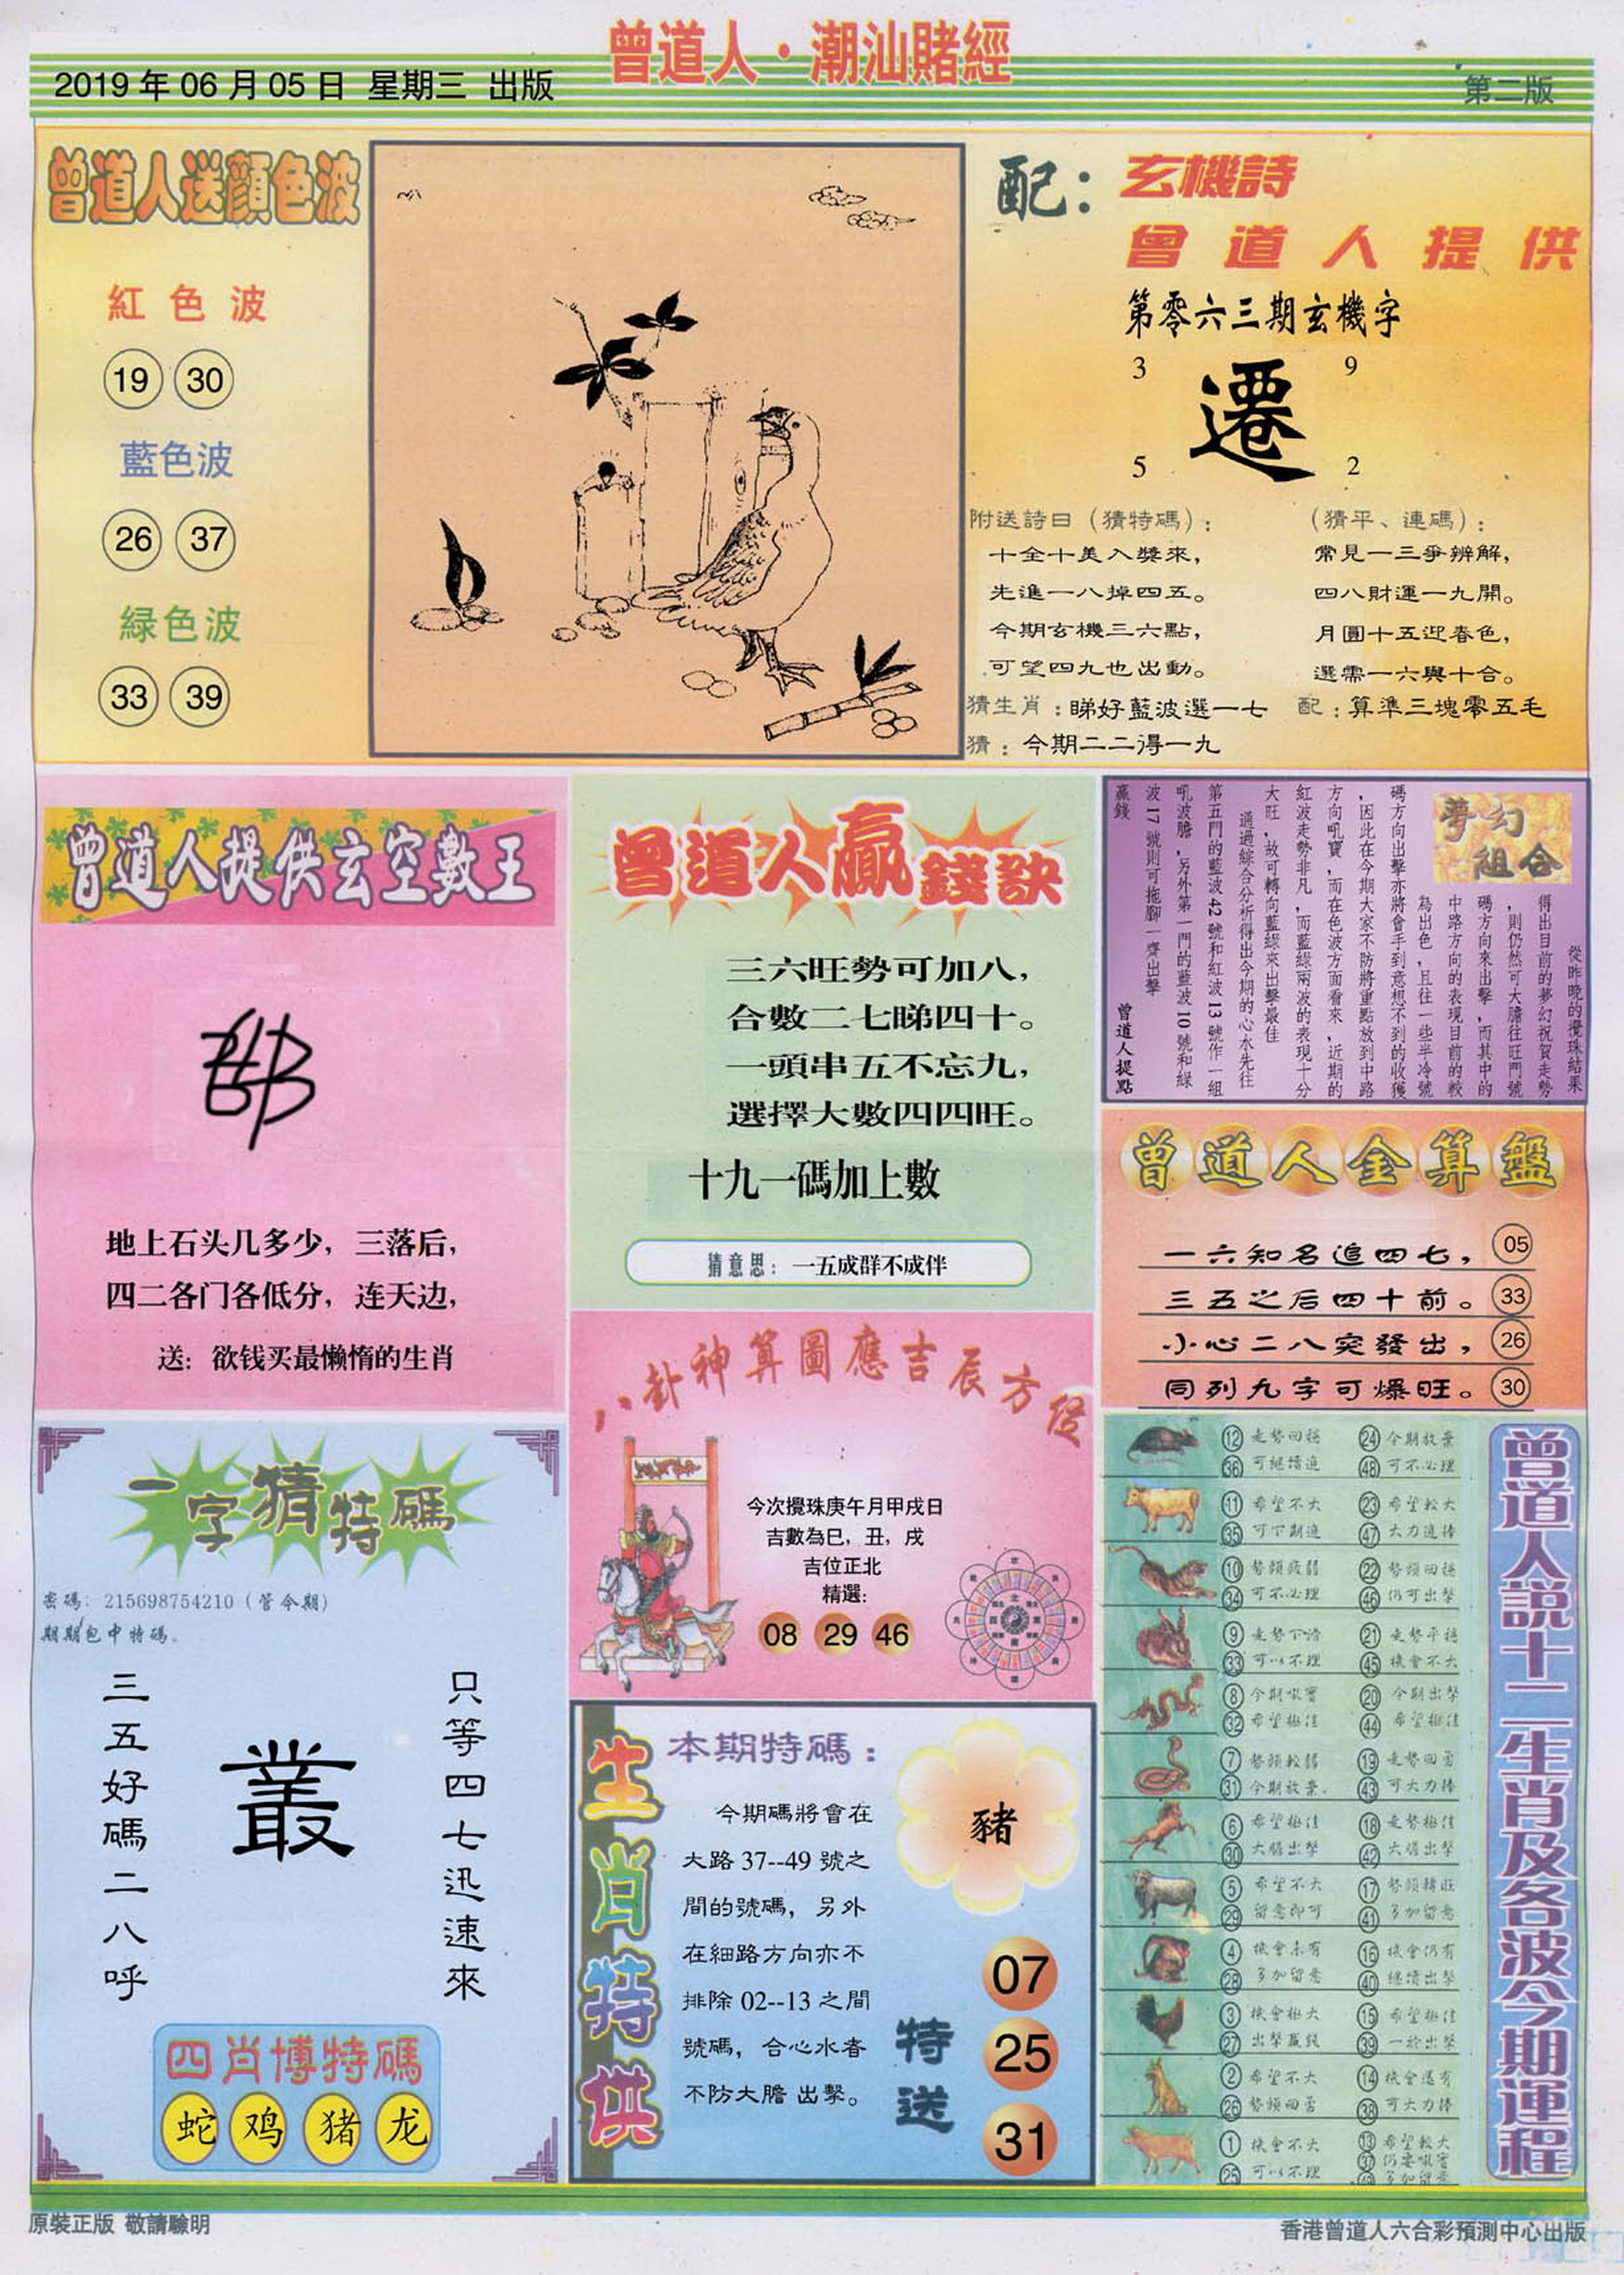 曾道人·潮汕賭經
2019 年 06 月 05 日 星期三 出版
第二版
曾道人送顔色波
紅色波
19 30
藍色波
26 37
緑色波
33 39
配：玄機詩
曾道人提供
第零六三期玄機字
3 9
遷
5 2
附送詩曰（猜特碼）：
十全十美入獎來，
先進一八掉四五。
今期玄機三六點，
可望四九也出動。
（猜平、連碼）：
常見一三爭辨解，
四八財運一九開。
月圓十五迎春色，
選需一六與十合。
猜生肖：睇好藍波選一七
配：算準三塊零五毛
猜：今期二二得一九
曾道人提供玄空數王
地上石头几多少，三落后，
四二各门各低分，连天边，
送：欲钱买最懒惰的生肖
曾道人贏錢訣
三六旺勢可加八，
合數二七睇四十。
一頭串五不忘九，
選擇大數四四旺。
十九一碼加上數
猜意思：一五成群不成伴
夢幻組合
從昨晚的攪珠結果
得出目前的夢幻祝賀走勢
，則仍然可大膽往旺門號
碼方向來出擊，而其中的
中路方向的表現目前的較
為出色，且往一些半冷號
碼方向出擊亦將會手到意想不到的收獲
，因此在今期大家不防將重點放到中路
方向吼寶，而在色波方面看來，近期的
紅波走勢非凡，而藍綠兩波的表現十分
大旺，故可轉向藍綠來出擊最佳
通過綜合分析得出今期的心水先往
第五門的藍波 42 號和紅波 13 號作一組
吼波膽，另外第一門的藍波 10 號和綠
波 17 號則可拖腳一齊出擊
贏錢
曾道人提點
曾道人金算盤
一六知名追四七， 05
三五之后四十前。 33
小心二八突發出， 26
同列九字可爆旺。 30
一字猜特碼
密碼：215698754210（管今期）
期期包中特碼。
只等四七迅速來
叢
三五好碼二八呼
四肖博特碼
蛇 鸡 猪 龙
八卦神算圖應吉辰方位
今次攪珠庚午月甲戌日
吉數為巳，丑，戌
吉位正北
精選：
08 29 46
生肖特供
本期特碼：
豬
今期碼將會在
大路 37--49 號之
間的號碼，另外
在細路方向亦不
排除 02--13 之間
號碼，合心水者
不防大膽出擊。
特送
07
25
31
曾道人説十二生肖及各波今期運程
12 走勢回穩 24 今期放棄
36 可繼續追 48 可不必理
11 希望不大 23 希望較大
35 可下期追 47 大力追捧
10 勢頭疲弱 22 勢頭回穩
34 可不必理 46 仍可出擊
9 走勢下滑 21 走勢平穩
33 可以不理 45 機會不大
8 今期吼寶 20 今期出擊
32 希望極佳 44 希望極佳
7 勢頭較弱 19 走勢回勇
31 今期放棄. 43 可大力捧
6 希望極佳 18 走勢極佳
30 大膽出擊 42 大膽出擊
5 希望不大 17 勢頭轉旺
29 留意即可 41 多加留意
4 機會未有 16 機會仍有
28 多加留意 40 繼續出擊
3 機會極大 15 希望極佳
27 出擊贏錢 39 一於出擊
2 希望不大 14 機會還有
26 勢頭回勇 38 可大力捧
1 機會不大 13 希望較大
25 可以不理 37 仍要吼寶
49 多加留意
原裝正版 敬請驗明
香港曾道人六合彩預測中心出版